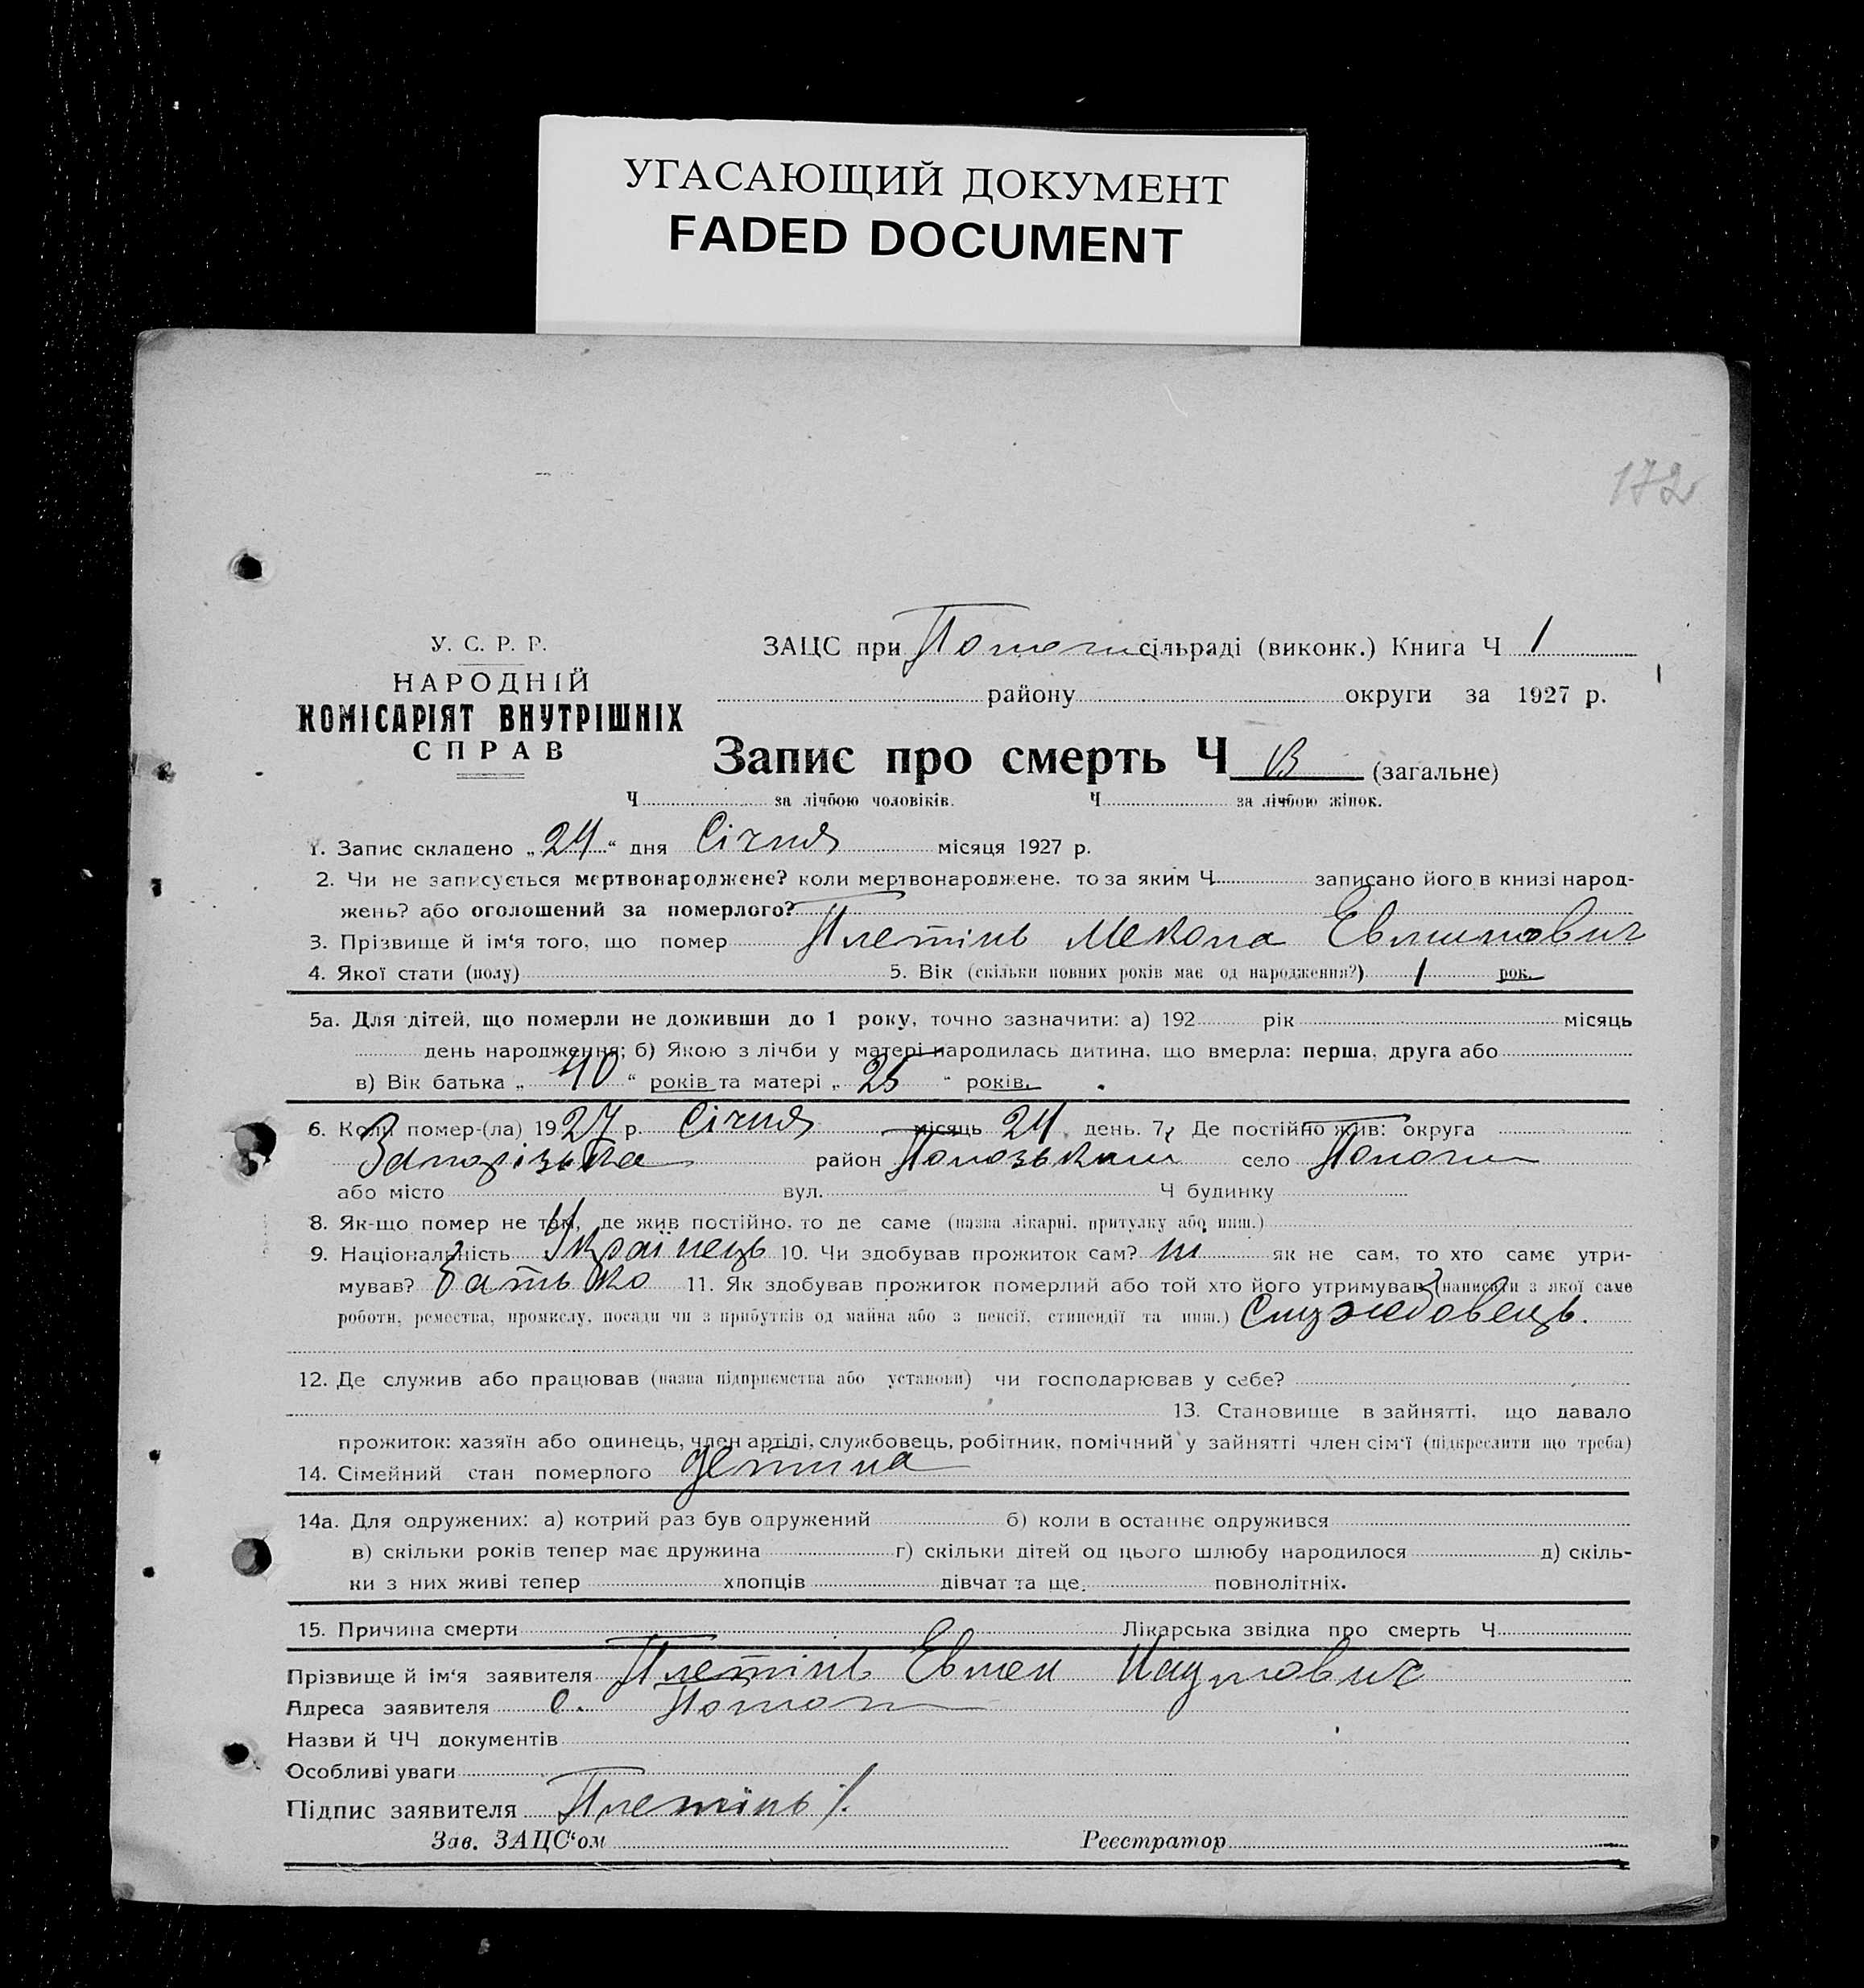 УГАСАЮЩИЙ ДОКУМЕНТ
FADED DOCUMENT
172
У. С. Р. Р.
НАРОДНІЙ
КОМІСАРІЯТ ВНУТРІШНІХ
СПРАВ
ЗАЦС при сільраді (виконк.) Книга Ч 1
району округи за 1927 р.
Запис про смерть Ч (загальне)
Ч за лічбою чоловіків. Ч за лічбою жінок.
1. Запис складено „24“ дня Січня місяця 1927 р.
2. Чи не записується мертвонароджене? коли мертвонароджене, то за яким Ч записано його в книзі народ-
жень? або оголошений за померлого?
3. Прізвище й ім‘я того, що помер Плетінь
4. Якої стати (полу) 5. Вік (скільки повних років має од народження?) 1 рок.
5а. Для дітей, що померли не доживши до 1 року, точно зазначити: а) 192 рік місяць
день народження; б) Якою з лічби у матері народилась дитина, що вмерла: перша, друга або
в) Вік батька „40“ років та матері „25“ років.
6. Коли помер-(ла) 1927 р. Січня місяць 24 день. 7. Де постійно жив: округа
Запорізька район село Пологи
або місто вул. Ч будинку
8. Як-що помер не там, де жив постійно, то де саме (назва лікарні, притулку або инш.)
9. Національність Українець 10. Чи здобував прожиток сам? ні як не сам, то хто саме утри-
мував? батько 11. Як здобував прожиток померлий або той хто його утримував (написати з якої саме
роботи, ремества, промислу, посади чи з прибутків од майна або з пенсії, стипендії та инш.) Службовець.
12. Де служив або працював (назва підприємства або установи) чи господарював у себе?
13. Становище в зайнятті, що давало
прожиток: хазяїн або одинець, член артілі, службовець, робітник, помічний у зайнятті член сім‘ї (підкреслити що треба)
14. Сімейний стан померлого детина
14а. Для одружених: а) котрий раз був одружений б) коли в останнє одружився
в) скільки років тепер має дружина г) скільки дітей од цього шлюбу народилося д) скіль-
ки з них живі тепер хлопців дівчат та ще повнолітніх.
15. Причина смерти Лікарська звідка про смерть Ч
Прізвище й ім‘я заявителя Плетінь Евмен Наумович
Адреса заявителя с. Пологи
Назви й ЧЧ документів
Особливі уваги
Підпис заявителя Плетінь
Зав. ЗАЦС‘ом Реєстратор